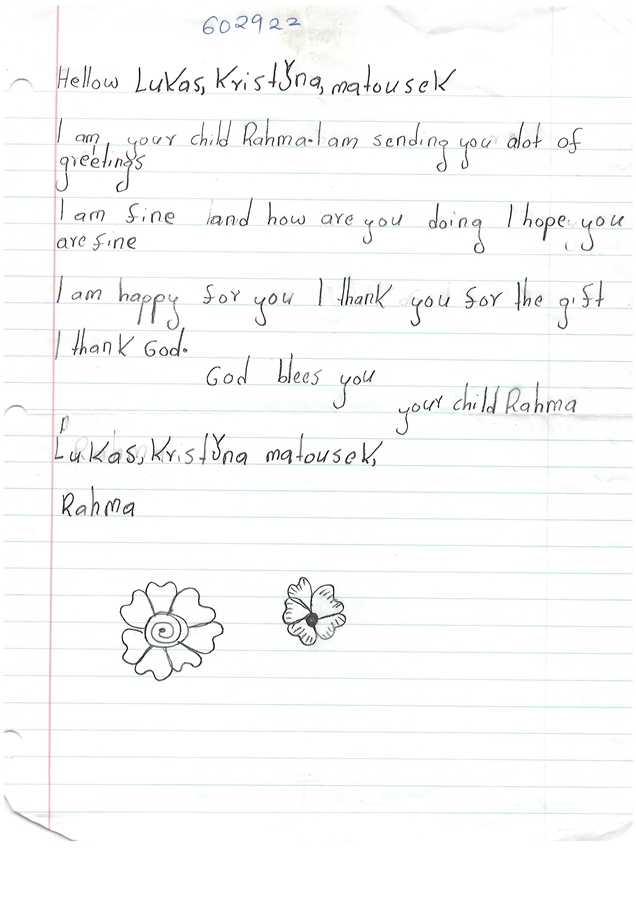 602922
Hellow Lukas, Kristyna, matousek
I am your child Rahma. I am sending you alot of
greetings
I am fine and how are you doing I hope you
are fine
I am happy for you I thank you for the gift
I thank God.
God blees you
your child Rahma
Lukas, Kristyna matousek,
Rahma